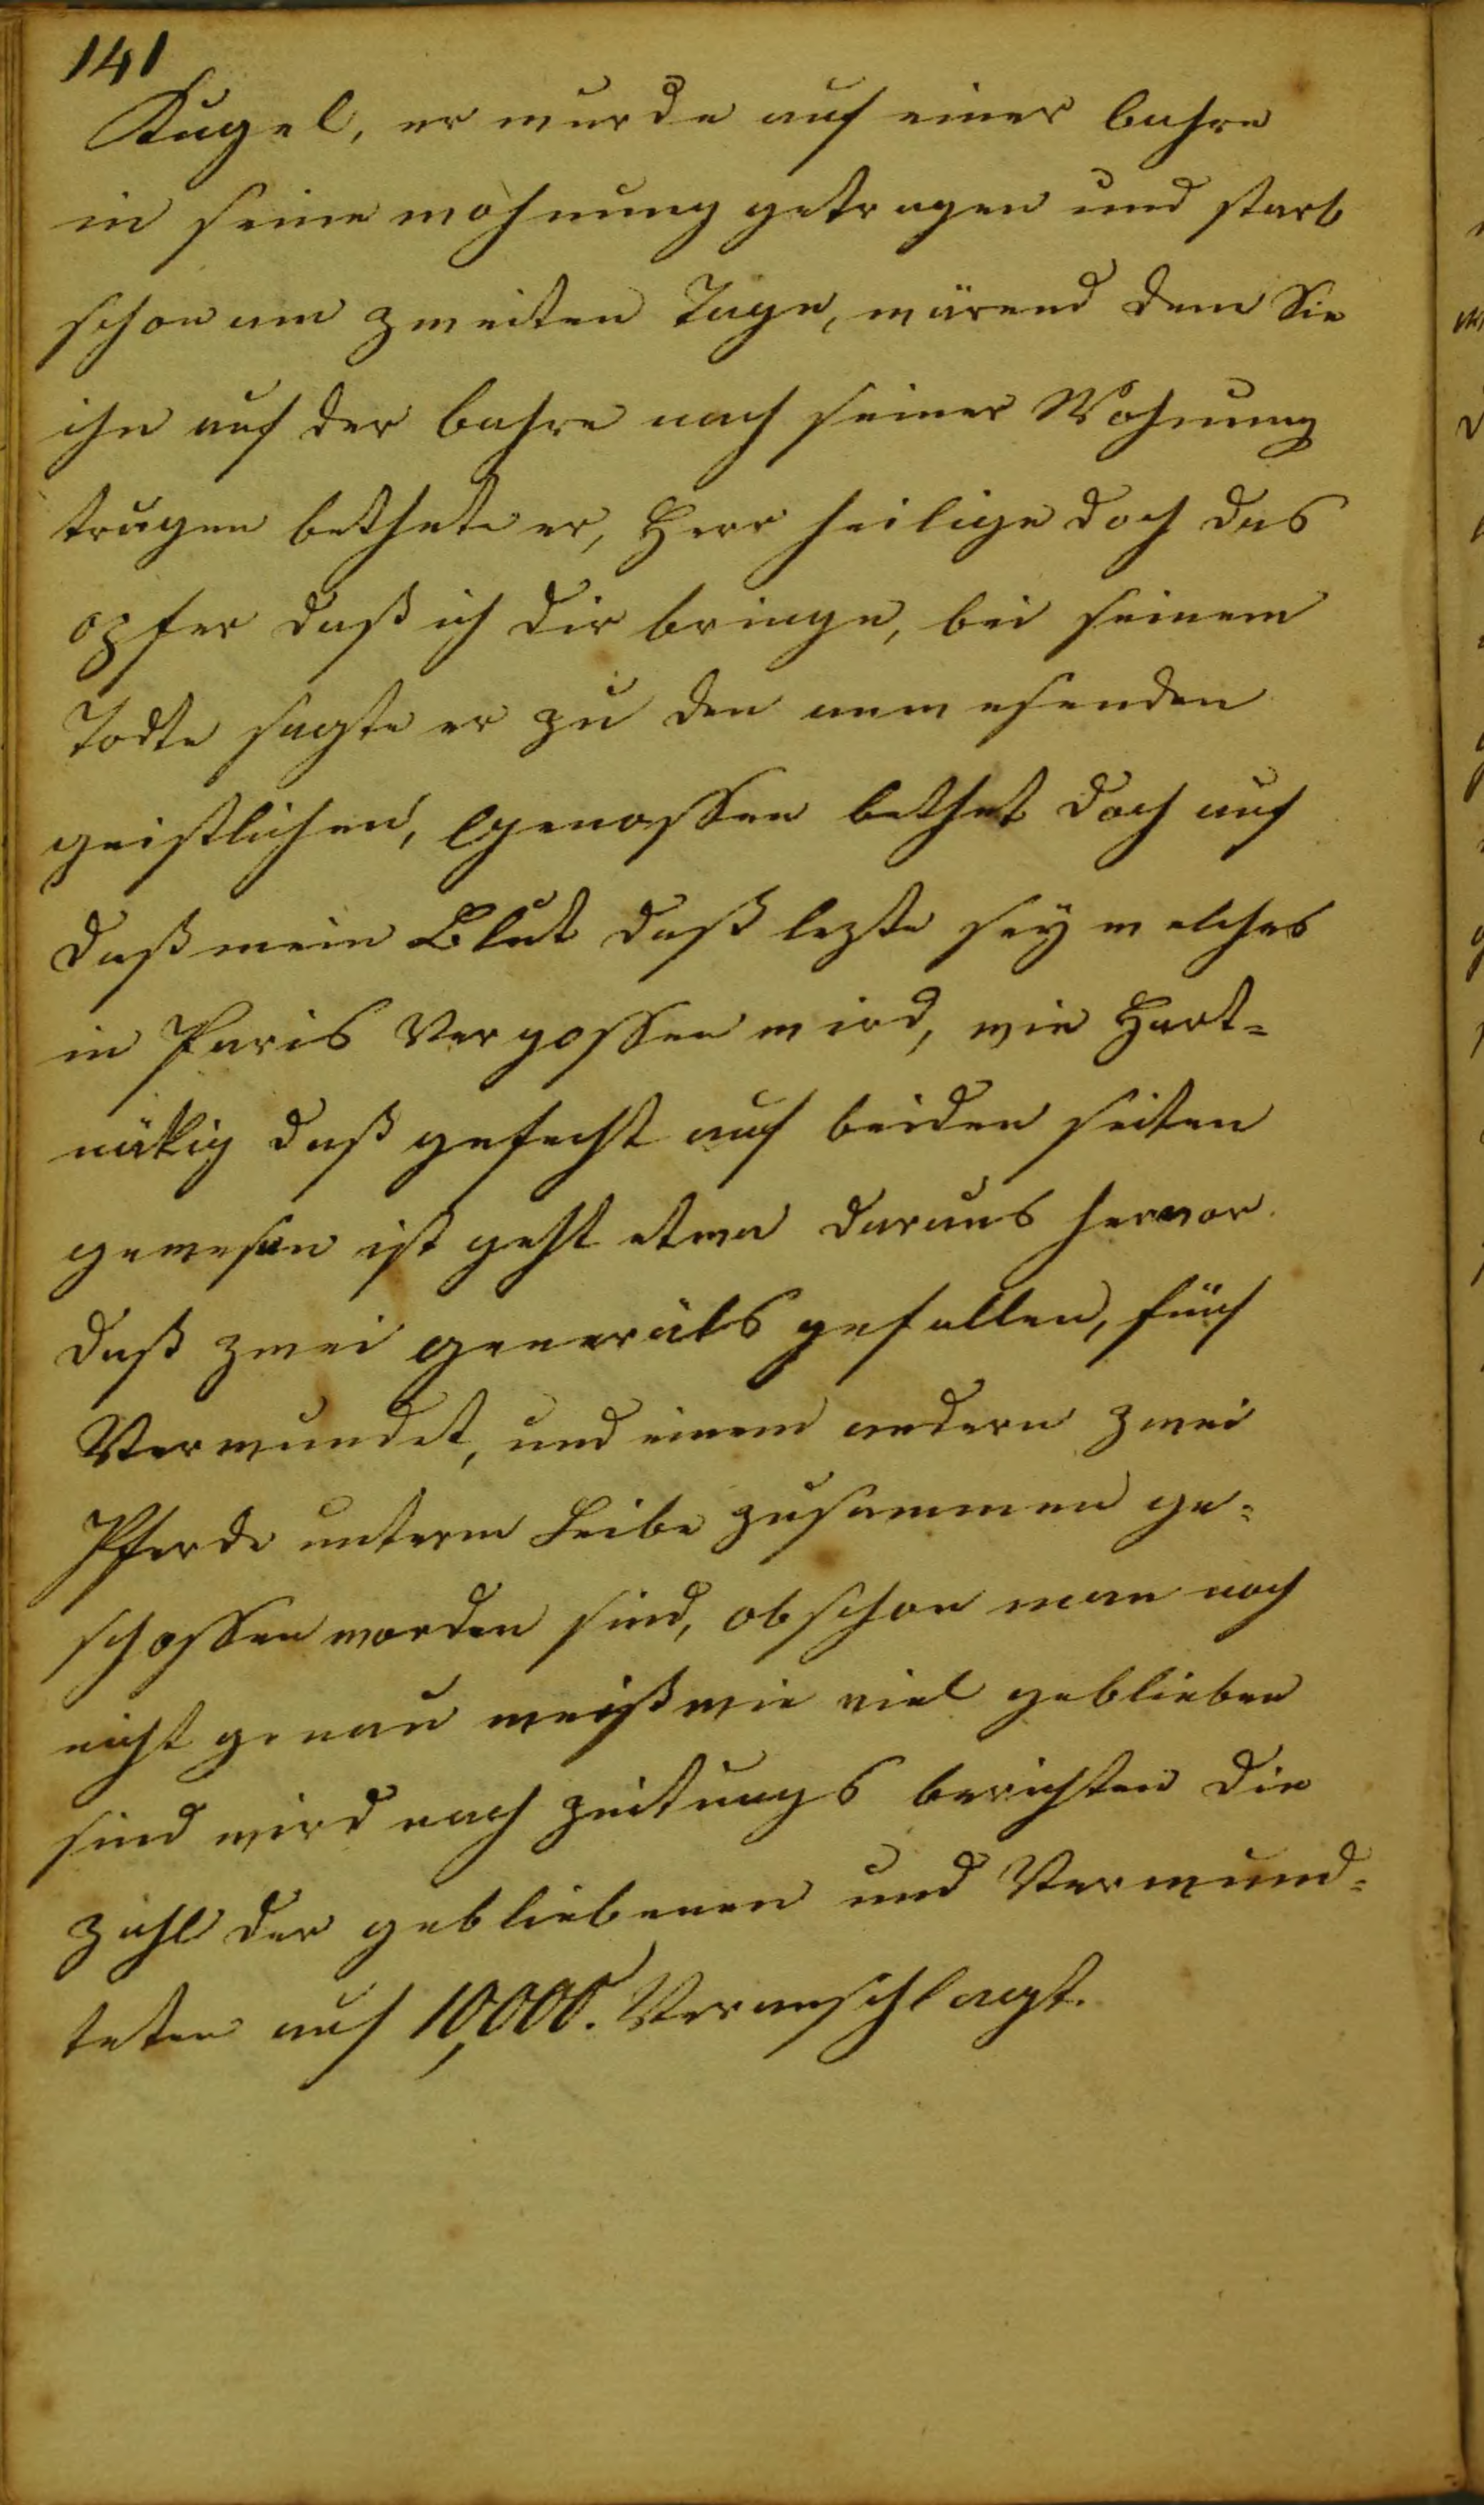 141
Kugel, er wurde auf einer bahre
in seine wohnung getragen und starb
schon am zweiten Tage, wärend dem Sie
ihn auf der bahre nach seiner Wohnung
trugen bethete er, Herr heilige doch das
opfer daß ich dir bringe, bei seinem
Todte sagte er zu den anwesenden
geistlichen, Genossen bethet doch auf
daß mein Blut daß lezte seÿ welches
in Paris Vergossen wird, wie Hart=
näkig daß gefecht auf beiden seiten
gewesen ist geht etwa daraus hervor
daß zwei generäls gefallen, fünf
Verwundet, und einem andern zwei
Pferde unterm Leibe zusammen ge=
schossen worden sind, obschon man noch
nicht genau weiß wie viel geblieben
sind wird nach zeitungs berichten die
zahl der gebliebenen und Verwund=
teten auf 10,000. Veranschlagt.